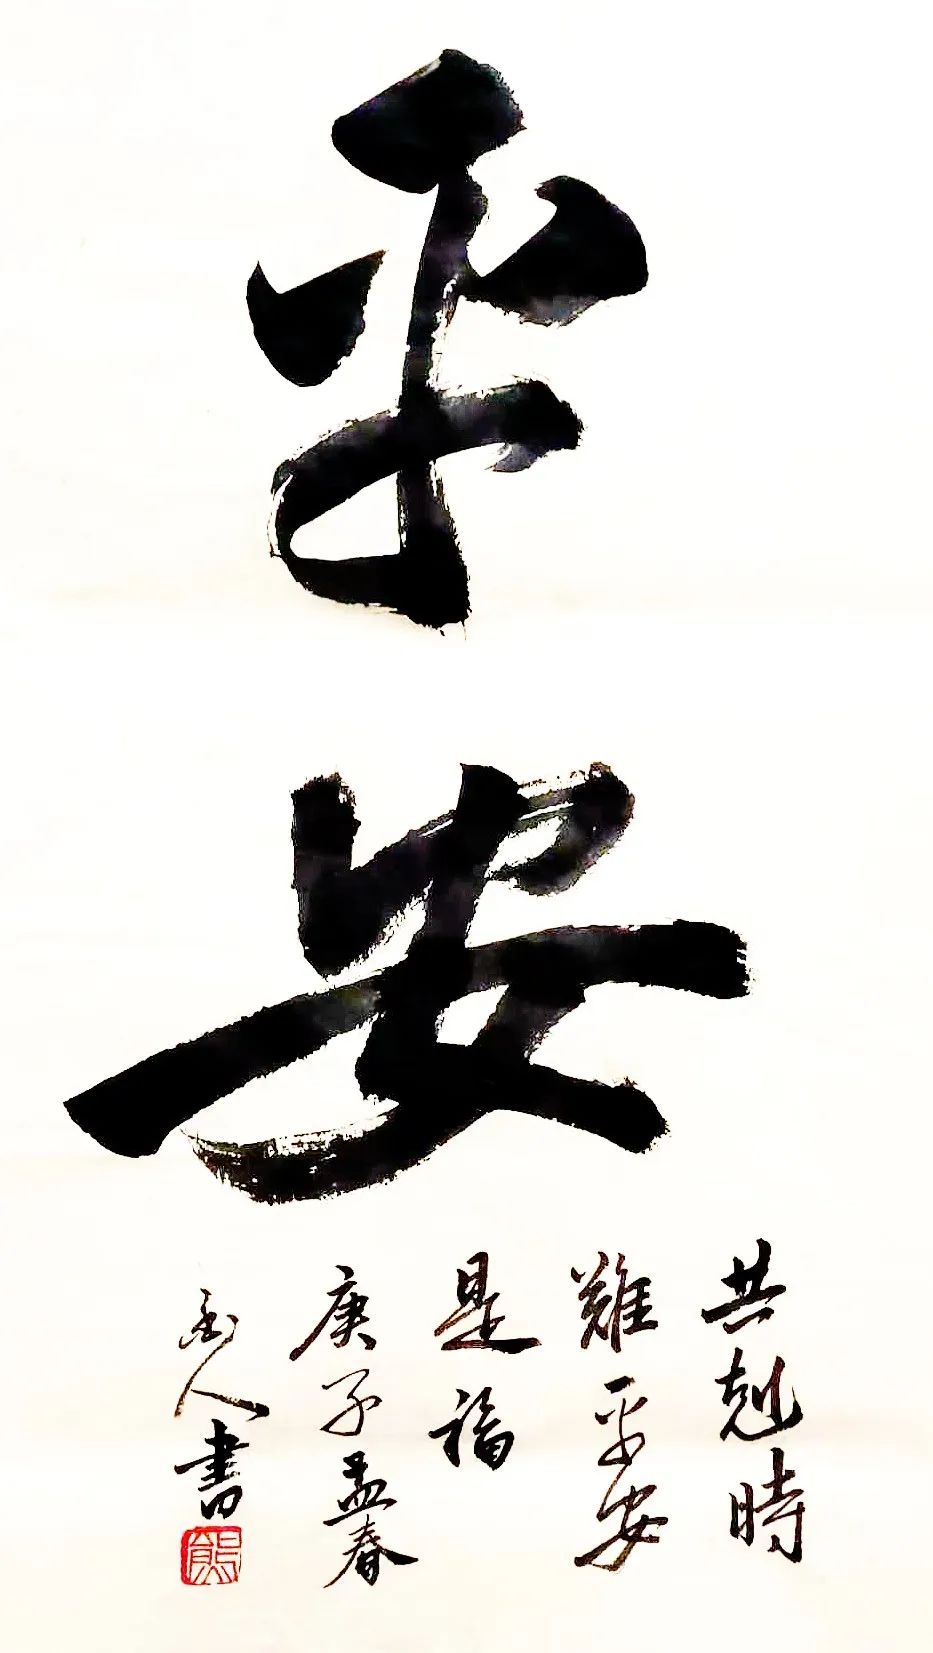 平安
共剋時
難平安
是福
庚子孟春
人書